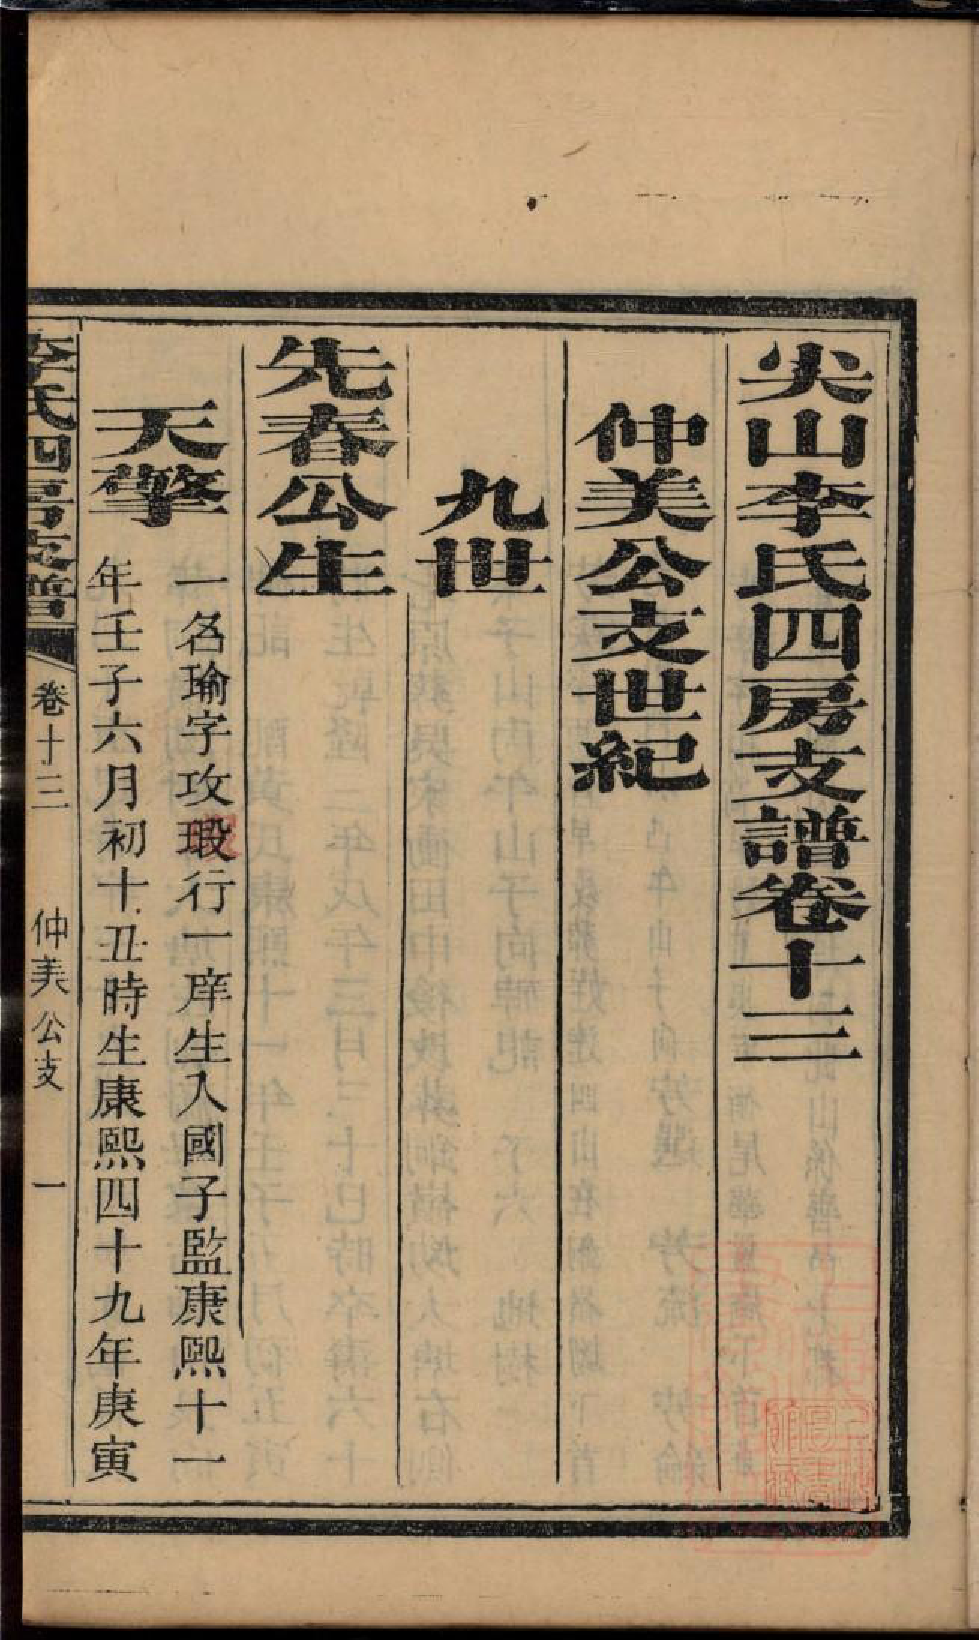 尖山李氏四房支譜卷十三
仲美公支世紀
九世
先春公生
天擎
一名瑜字攻瑕行一庠生入國子監康熙十一
年壬子六月初十丑時生康熙四十九年庚寅
李氏四房支譜
卷十三
仲美公支
一